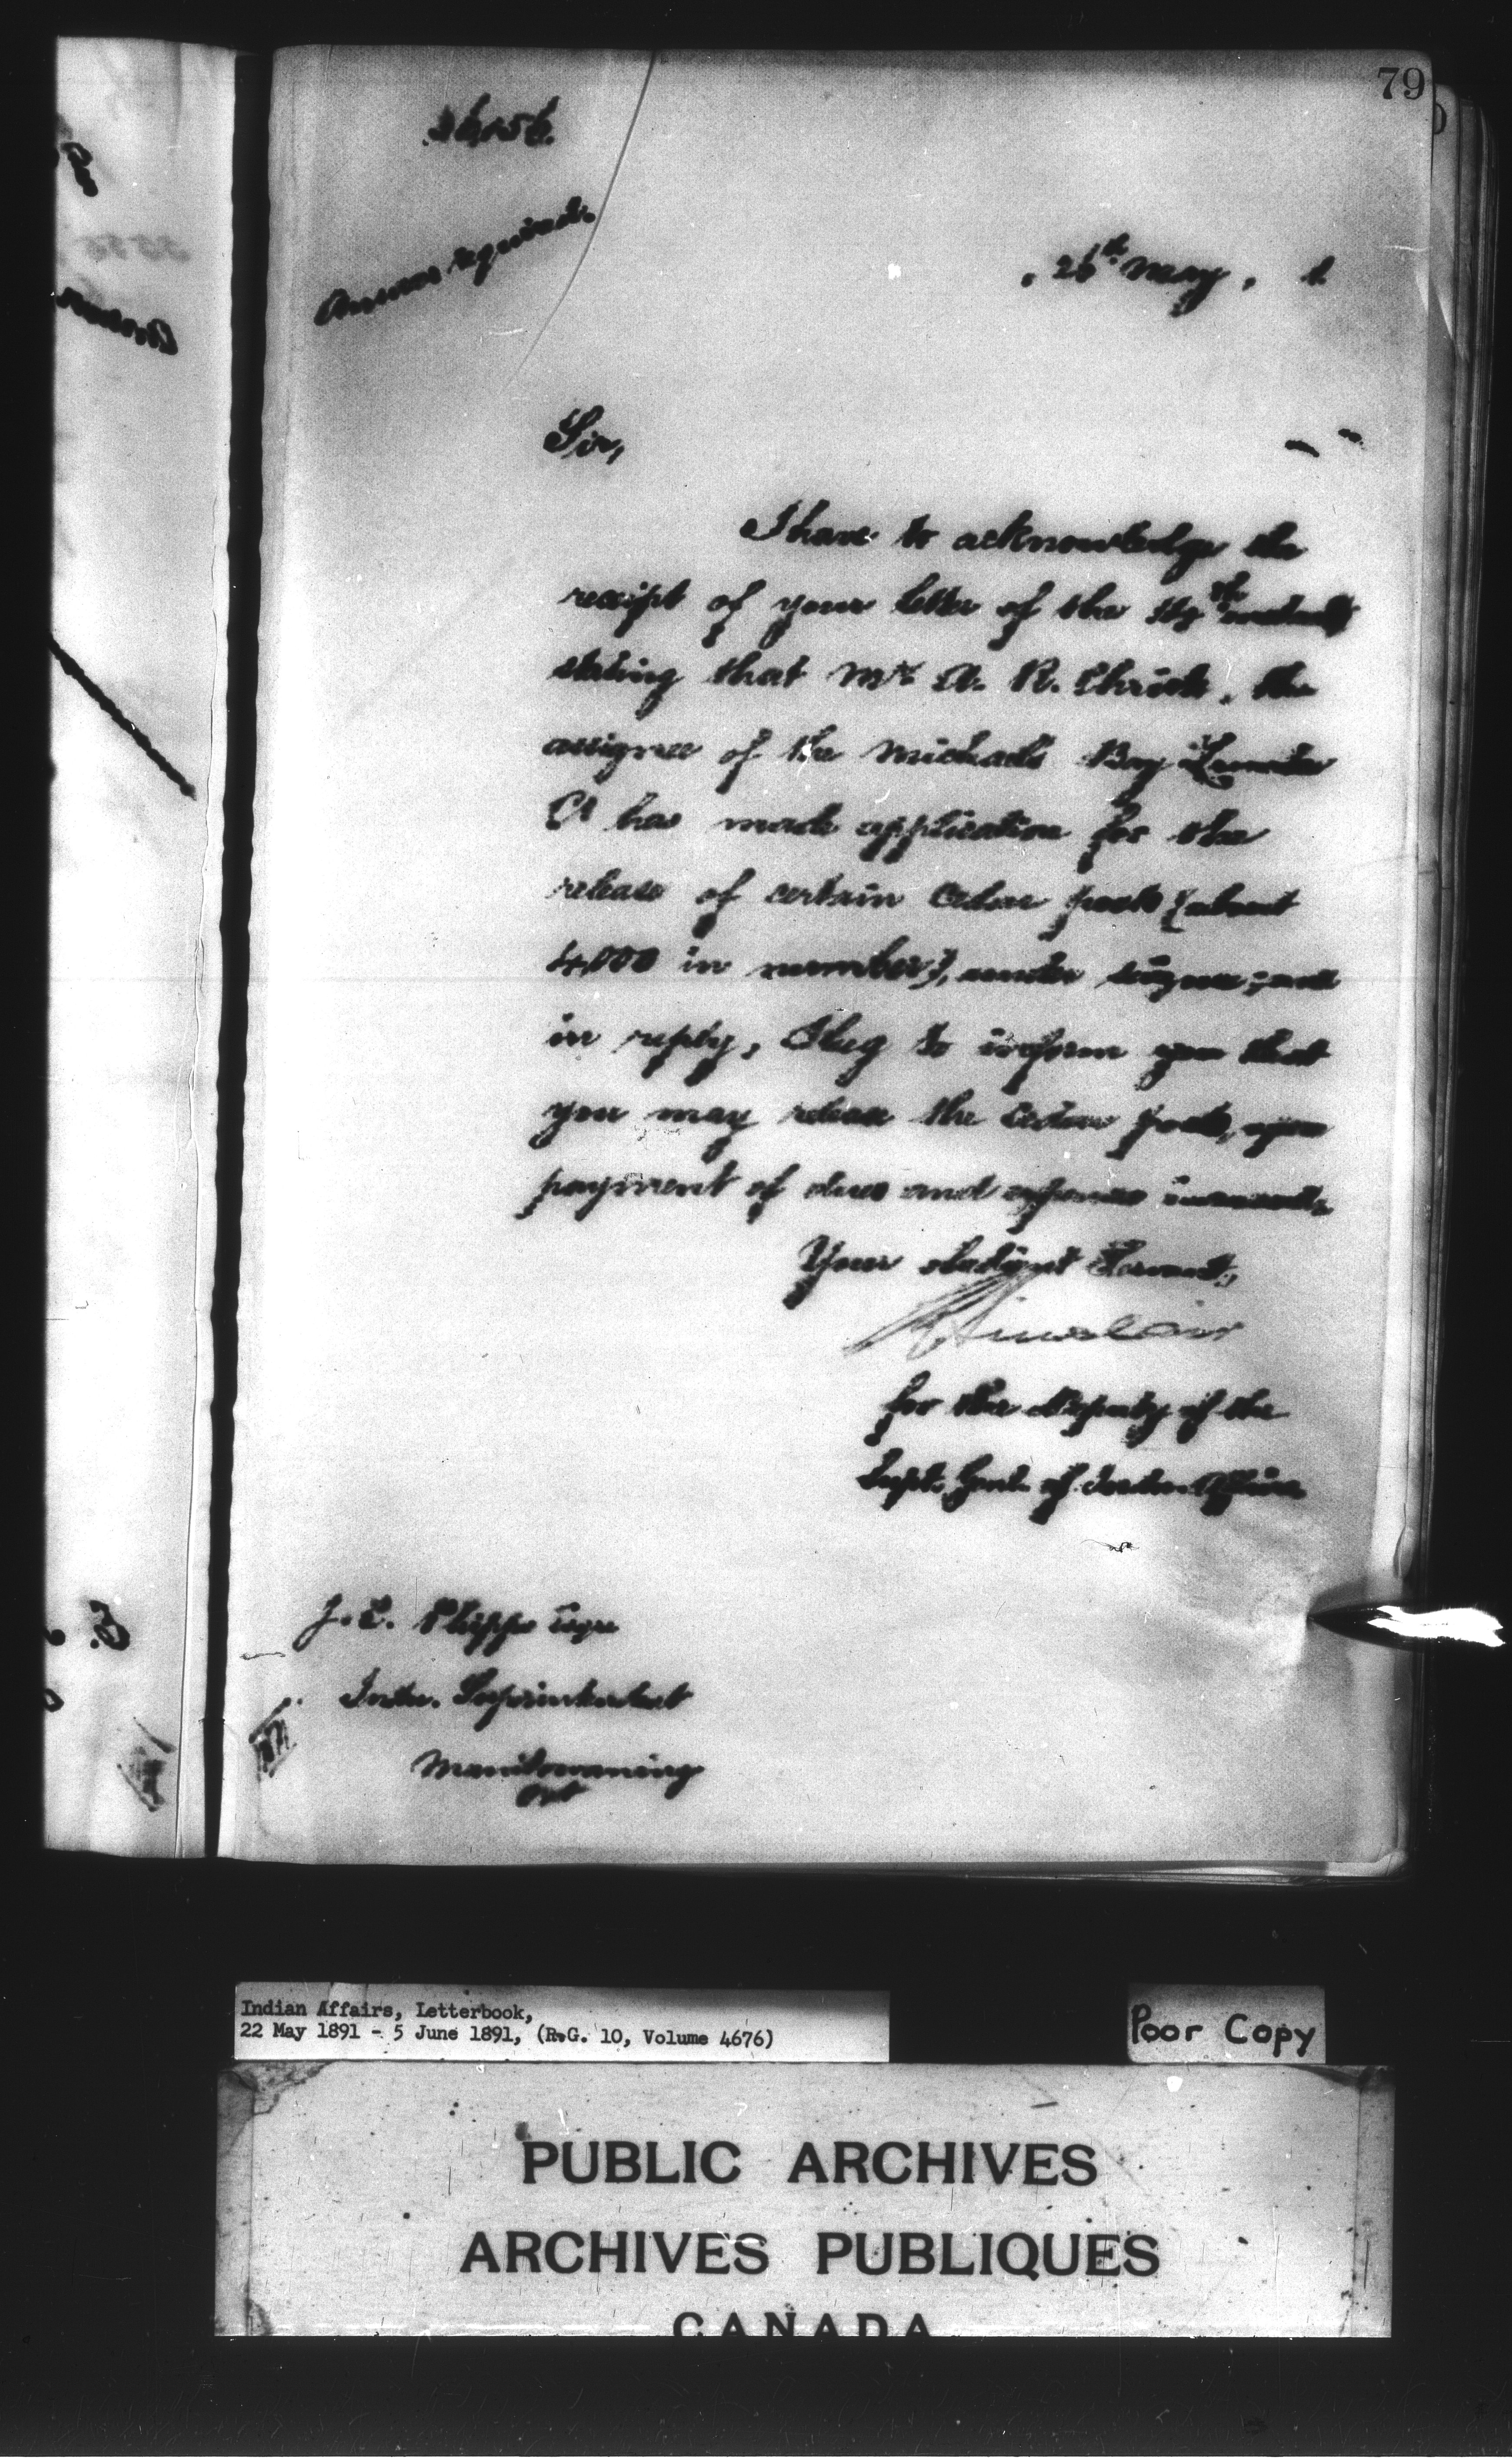 79
Answer required.
26th May, 1
Sir,
I have to acknowledge the
receipt of your letter of the instant
stating that Mr A. R. Christie, the
assignee of the Michaels Bay Lumber
Co has made application for the
release of certain Cedar posts (about
4,000 in number), under seizure; and
in reply, I beg to inform you that
you may release the Cedar posts, upon
payment of dues and expenses incurred.
Your obedient Servant,
Sinclair
for the Deputy of the
Supt. Genl. of Indn. Affairs
J. C. Phipps Esqre
Indn. Superintendent
Manitowaning
Ont
Indian Affairs, Letterbook,
22 May 1891 - 5 June 1891, (R.G. 10, Volume 4676)
Poor Copy
PUBLIC ARCHIVES
ARCHIVES PUBLIQUES
CANADA